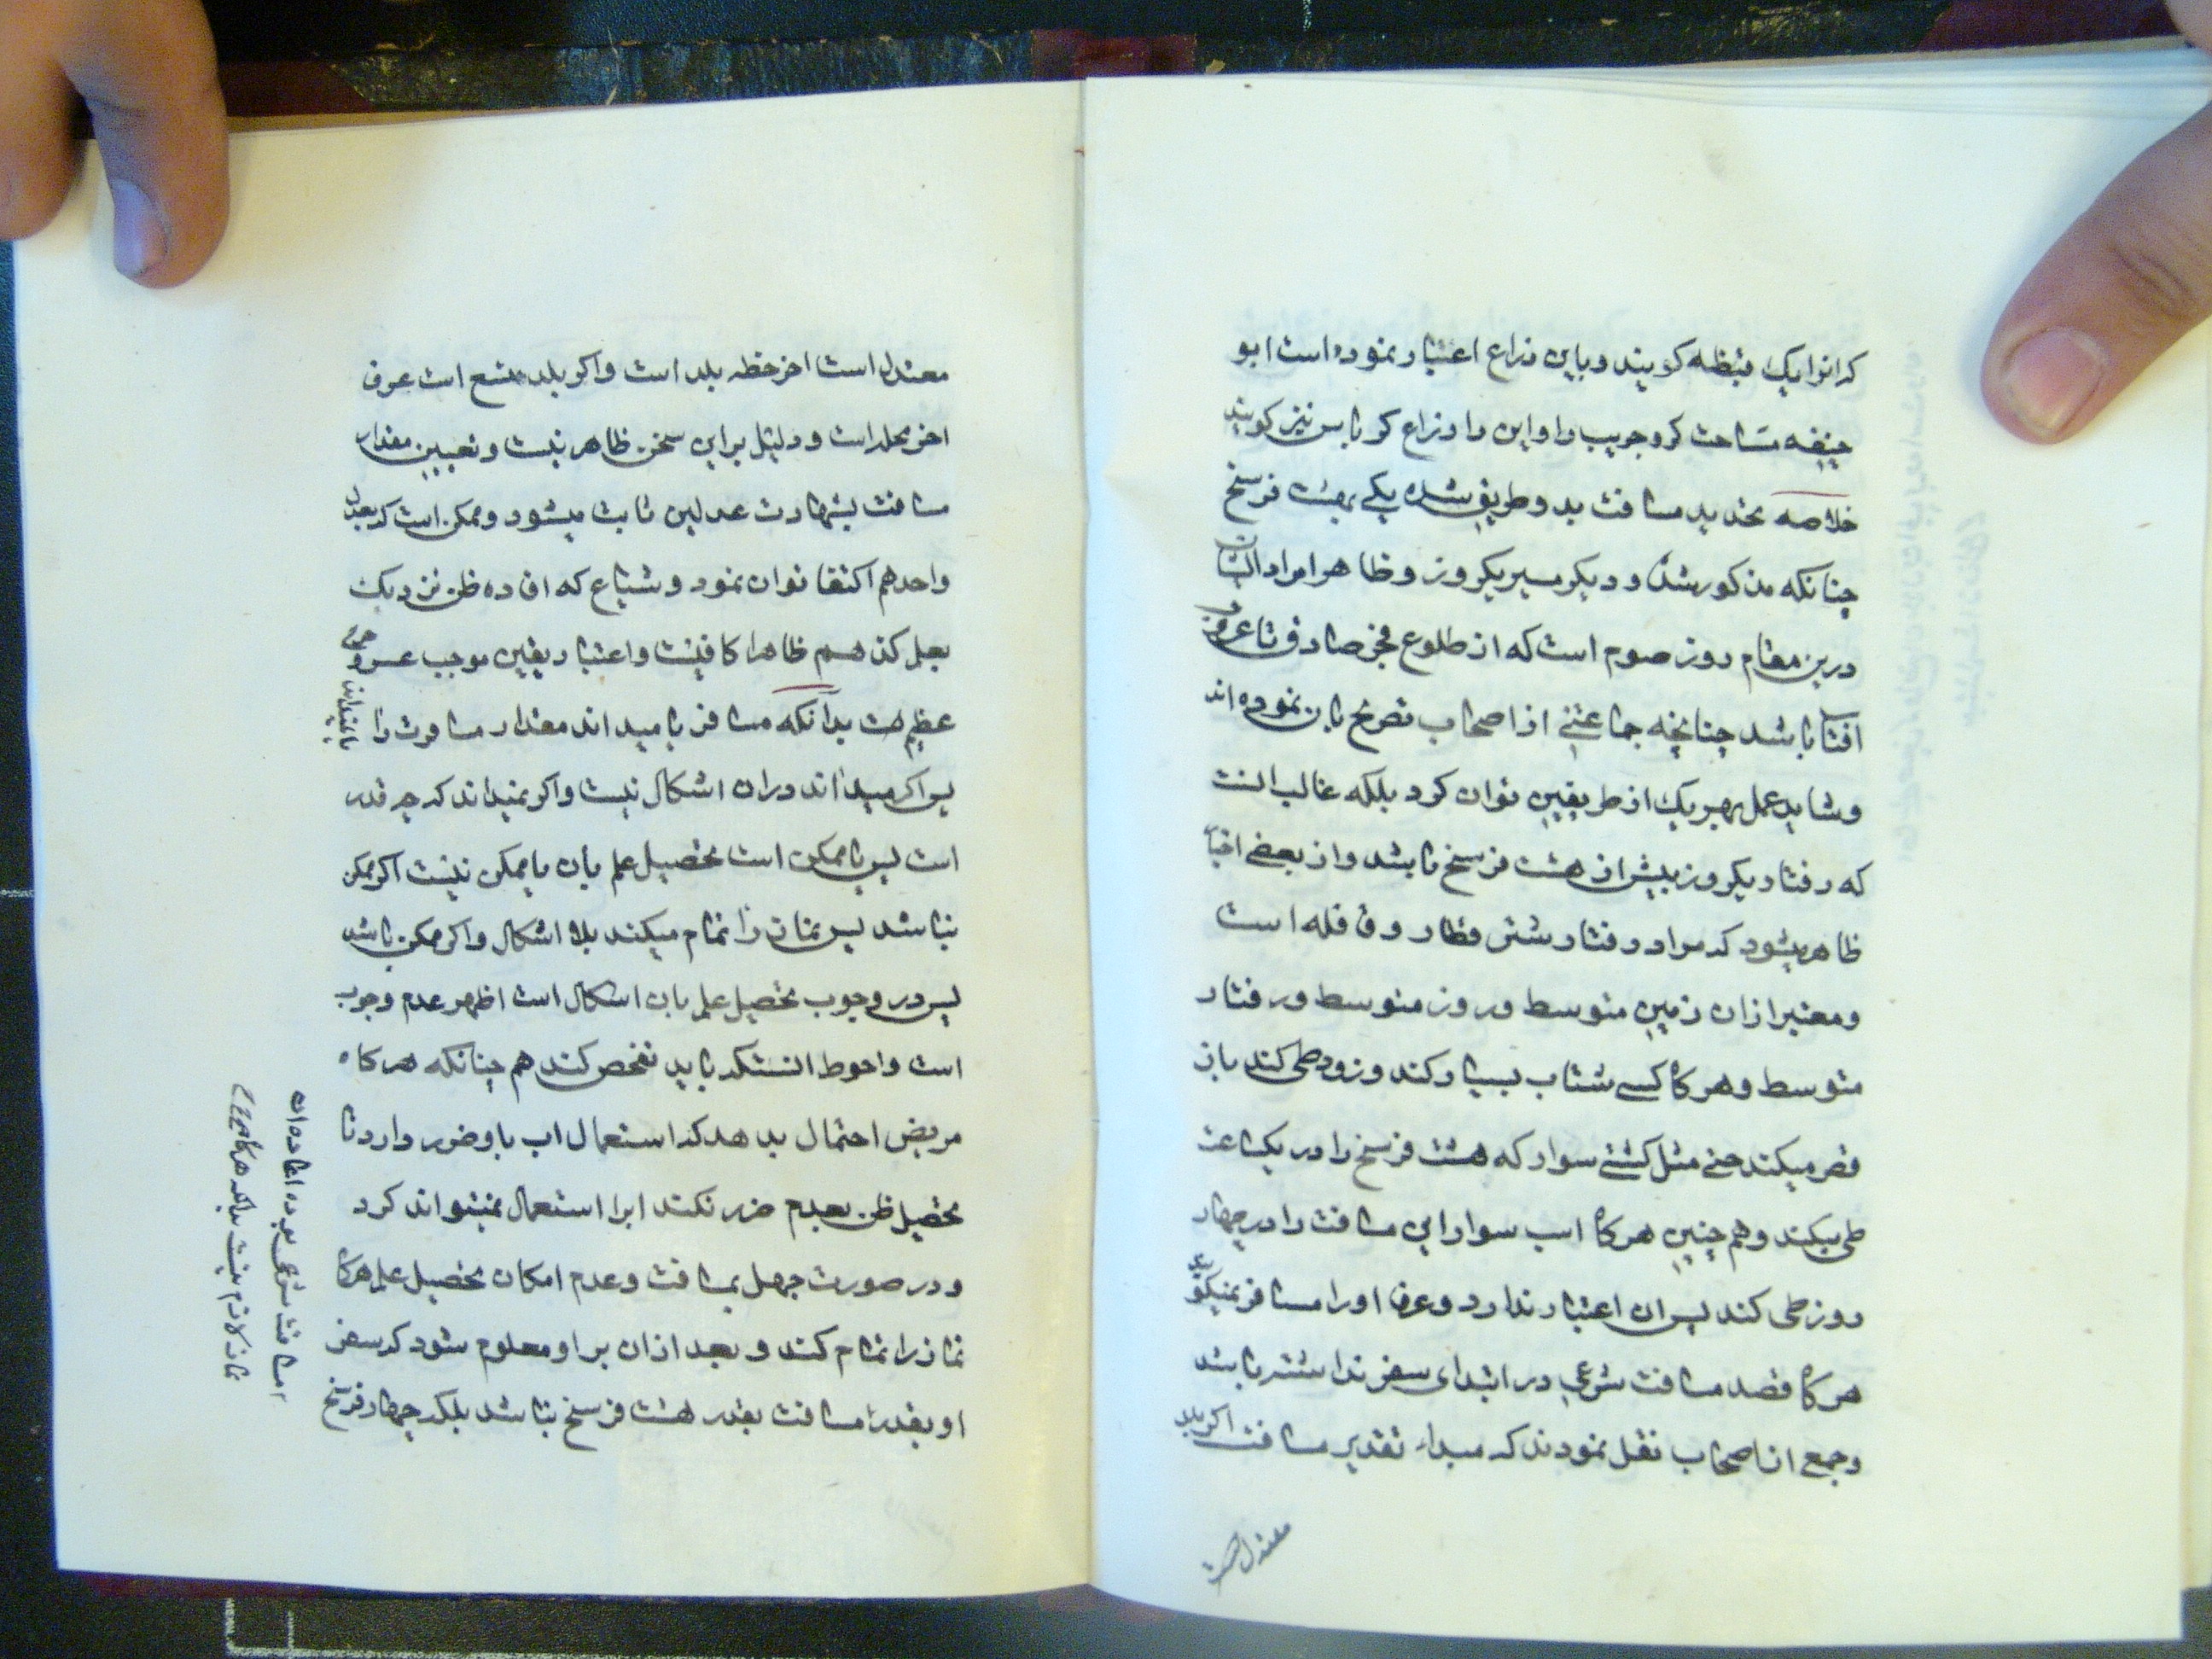 که انرا یک قبظه کویند و باین ذراع اعتبار نموده است ابو
حنیفه مساحت کر و جریب را و این را ذراع کرباس نیز کویند
خلاصه تحدید مسافت بدو طریق شده یکی بهشت فرسخ
چنانکه مذکور شد و دیکر مسیر یکروز و ظاهرا مراد
درین مقام روز صوم است که از طلوع فجر صادق تا غروب
افتاب باشد چنانچه جماعتی از اصحاب تصریح بان نموده اند
و شاید عمل بهر یک از طریقین توان کرد بلکه غالب انست
که رفتار یکروز بیش از هشت فرسخ باشد و از بعضی اخبار
ظاهر میشود که مراد رفتار شتر قطار و قافله است
و معتبر ازان زمین متوسط و روز متوسط و رفتار
متوسط و هرکاه کسی شتاب بسیار کند و زود طی کند باز
قصر میکند حتی مثل کشتی سوار که هشت فرسخ را در یکساعت
طی میکند و هم چنین هرکاه اسب سوار این مسافت را در چهار
روز طی کند پس ان اعتبار ندارد و عرفا او را مسافر نمیکویند
هرکاه قصد مسافت شرعی در ابتدای سفر نداشته باشد
و جمع از اصحاب نقل نمودند که مبداء تقدیر مسافت اکر بلد
معتدل است
معتدل است اخر خطه بلد است و اکر بلد متسع است عرف
اخر محله است و دلیل بر این سخن ظاهر نیست و تعیین مقدار
مسافت بشهادت عدلین ثابت میشود و ممکن است که بعدل
واحد هم اکتفا توان نمود و شیاع که افاده ظن نزدیک
بعلم کند هم ظاهرا کافیست و اعتبار یقین موجب عسر و حرج
عظیم است بدانکه مسافر یا میداند مقدار مسافت را
یا نمیداند
پس اکر میداند دران اشکال نیست و اکر نمیداند که چه قدر
است پس یا ممکن است تحصیل علم بان یا ممکن نیست اکر ممکن
نباشد پس نماز را تمام میکند بلا اشکال و اکر ممکن باشد
پس در وجوب تحصیل علم بان اشکال است اظهر عدم وجوب
است و احوط انستکه باید تفحص کند هم چنانکه هرکاه
مریض احتمال بدهد که استعمال اب باو ضرر دارد تا
تحصیل ظن بعدم ضرر نکند ابرا استعمال نمیتواند کرد
و در صورت جهل بمسافت و عدم امکان تحصیل علم هرکاه
نماز را تمام کند و بعد ازان بر او معلوم شود که سفر
او بقدر مسافت بقدر هشت فرسخ نباشد بلکه چهار فرسخ
مسافت شرعی بوده اعاده ان
نماز لازم نیست بلکه هرکاه